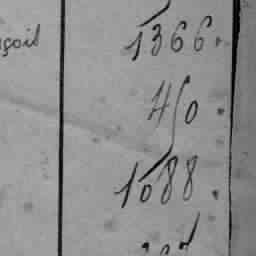 çoil 1366.
450.
1088.